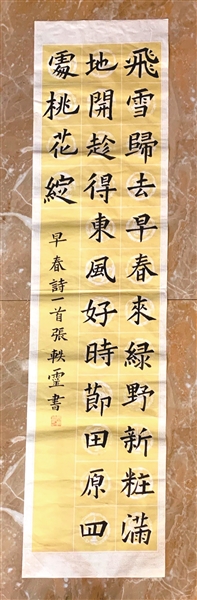 飛雪歸去早春來綠野新粧滿
地開趁得東風好時節田原四
處桃花綻
早春詩一首張軼靈書